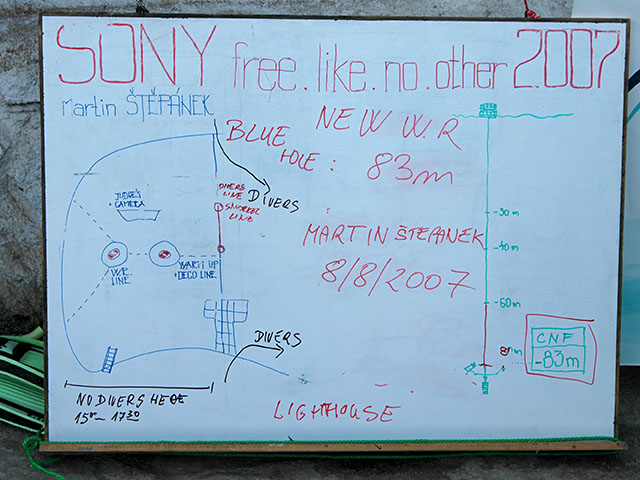 SONY free.like.no.other 2007
Martin ŠTĚPÁNEK
BLUE HOLE: NEW W.R
83m
MARTIN ŠTĚPÁNEK
8/8/2007
JUDGES
+ CAMERA
DIVERS
LINE
SNORKEL
LINE
DIVERS
W.R.
LINE
WARM UP
+ DECO LINE
DIVERS
NO DIVERS HERE
15⁰⁰ - 17³⁰
LIGHTHOUSE
-30m
-40m
-60m
CNF
-83m